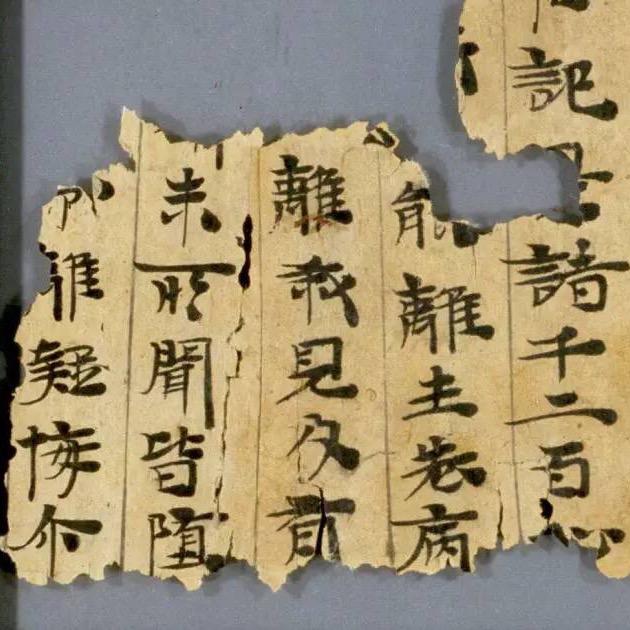 記是諸千二百心
能離生老病
離我見及有
未所聞皆墮
離疑悔尒